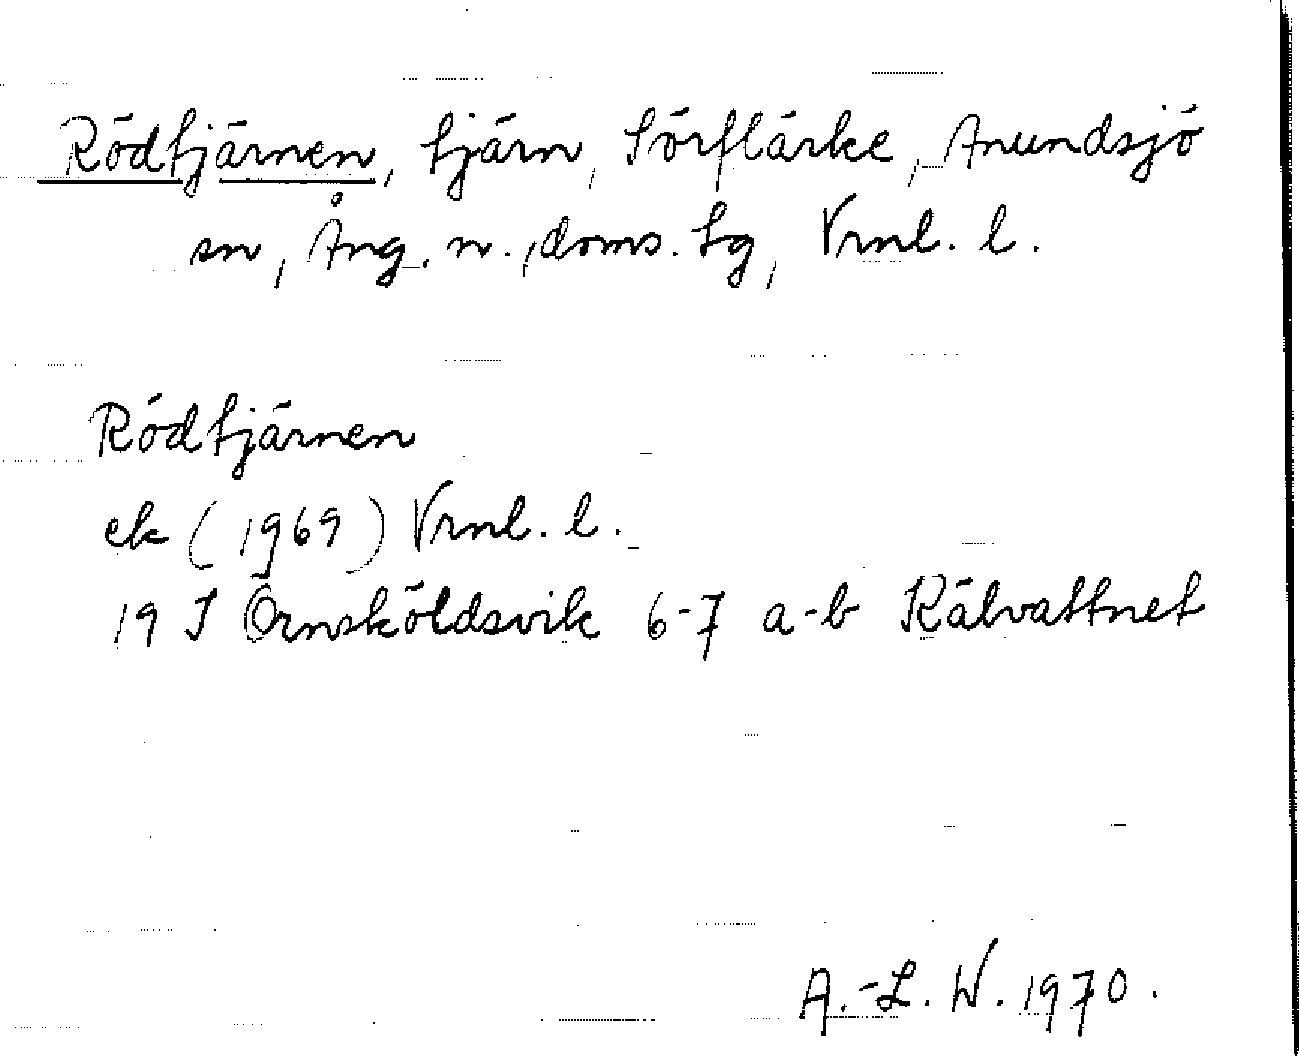 Rödtjärnen, tjärn, Sörflärke, Anundsjö
sn, Ång. n., doms. tg, Vrnl. l.
Rödtjärnen
ek (1969) Vrnl. l.
19 J Örnsköldsvik 6-7 a-b Kälvattnet
A.-L. W. 1970.